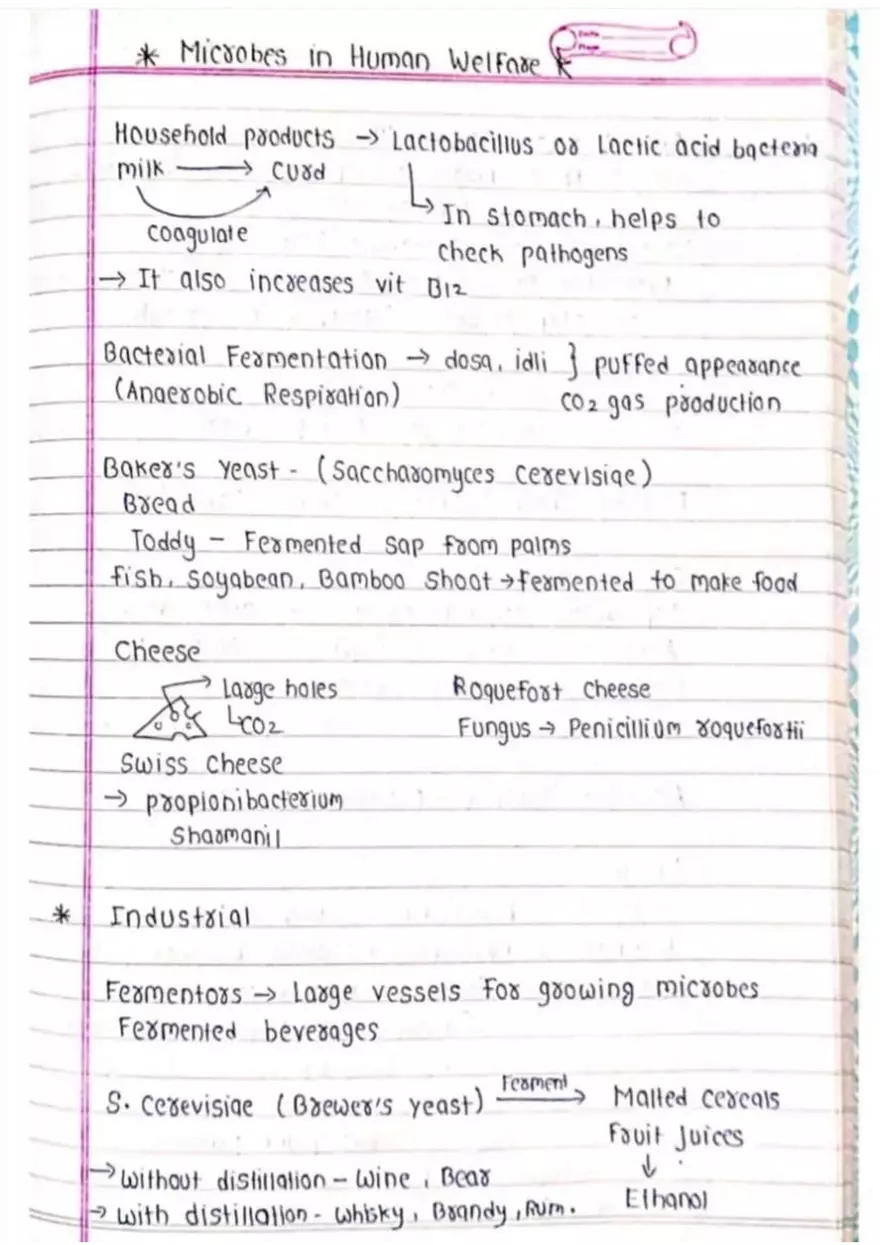 * Microbes in Human Welfare *
Household products → Lactobacillus or Lactic acid bacteria
milk → Curd
coagulate
↳ In stomach, helps to
check pathogens
→ It also increases vit B12
Bacterial Fermentation → dosa, idli } puffed appearance
(Anaerobic Respiration) CO2 gas production
Baker's Yeast - (Saccharomyces cerevisiae)
Bread
Toddy - Fermented sap from palms
fish, Soyabean, Bamboo Shoot → fermented to make food
Cheese
Large holes
↳ CO2
Swiss cheese
→ propionibacterium
Sharmanii
Roquefort cheese
Fungus → Penicillium roquefortii
* Industrial
Fermentors → Large vessels for growing microbes
Fermented beverages
S. cerevisiae (Brewer's yeast) Ferment → Malted cereals
Fruit Juices
↓
Ethanol
→ without distillation - Wine, Bear
→ with distillation - whisky, Brandy, Rum.